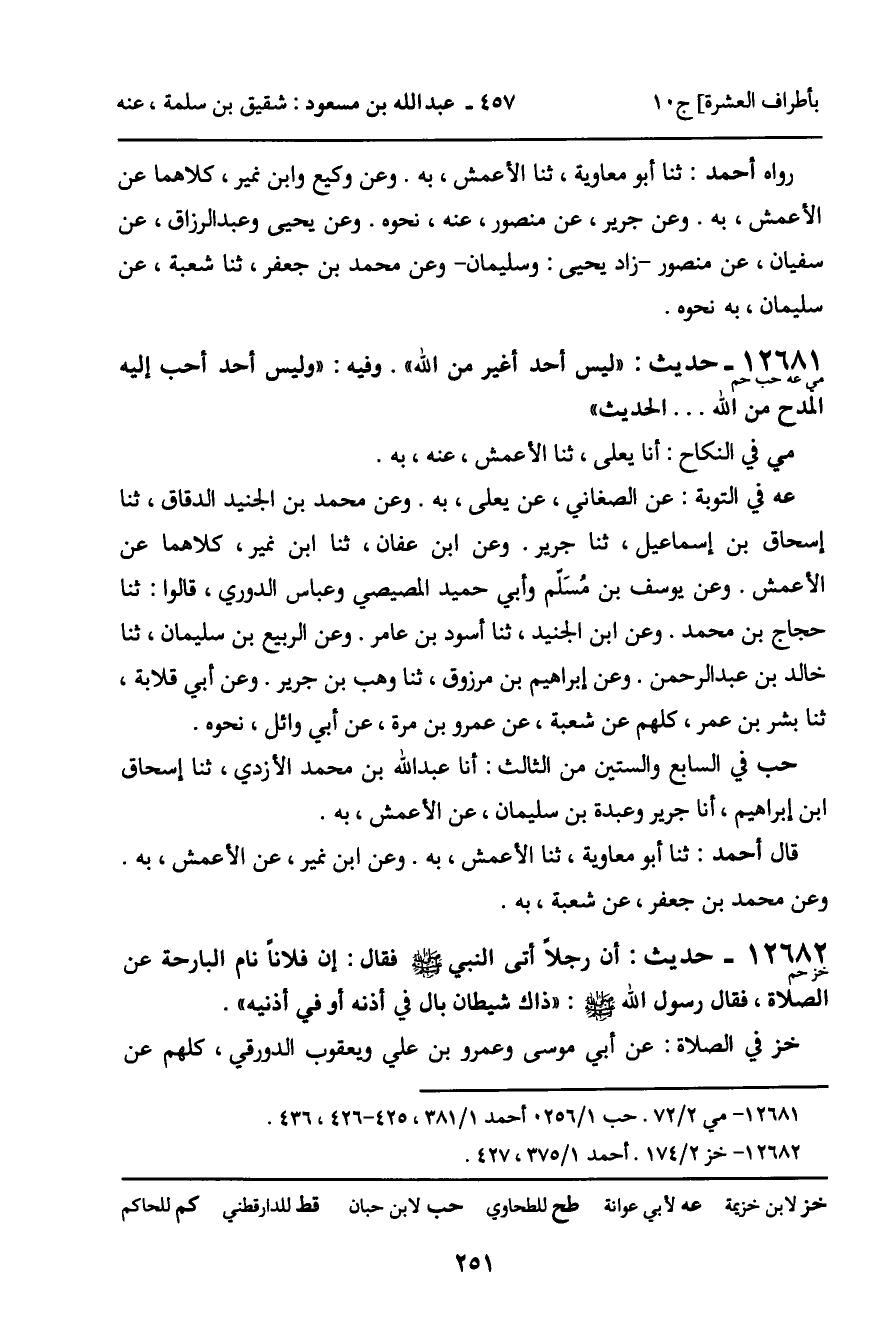 بأطراف العشرة] ج١٠ ٤٥٧ ـ عبدالله بن مسعود : شقيق بن سلمة ، عنه
رواه أحمد : ثنا أبو معاوية ، ثنا الأعمش ، به . وعن وكيع وابن نمير ، كلاهما عن
الأعمش ، به . وعن جرير ، عن منصور ، عنه ، نحوه . وعن يحيى وعبدالرزاق ، عن
سفيان ، عن منصور –زاد يحيى : وسليمان– وعن محمد بن جعفر ، ثنا شعبة ، عن
سليمان ، به نحوه .
١٢٦٨١ ـ حديث : «ليس أحد أغير من الله» . وفيه : «وليس أحد أحب إليه
مي عه حب حم
المدح من الله . . . الحديث»
مي في النكاح : أنا يعلى ، ثنا الأعمش ، عنه ، به .
عه في التوبة : عن الصغاني ، عن يعلى ، به . وعن محمد بن الجنيد الدقاق ، ثنا
إسحاق بن إسماعيل ، ثنا جرير . وعن ابن عفان ، ثنا ابن نمير ، كلاهما عن
الأعمش . وعن يوسف بن مُسَلّم وأبي حميد المصيصي وعباس الدوري ، قالوا : ثنا
حجاج بن محمد . وعن ابن الجنيد ، ثنا أسود بن عامر . وعن الربيع بن سليمان ، ثنا
خالد بن عبدالرحمن . وعن إبراهيم بن مرزوق ، ثنا وهب بن جرير . وعن أبي قلابة ،
ثنا بشر بن عمر ، كلهم عن شعبة ، عن عمرو بن مرة ، عن أبي وائل ، نحوه .
حب في السابع والستين من الثالث : أنا عبدالله بن محمد الأزدي ، ثنا إسحاق
ابن إبراهيم ، أنا جرير وعبدة بن سليمان ، عن الأعمش ، به .
قال أحمد : ثنا أبو معاوية ، ثنا الأعمش ، به . وعن ابن نمير ، عن الأعمش ، به .
وعن محمد بن جعفر ، عن شعبة ، به .
١٢٦٨٢ ـ حديث : أن رجلاً أتى النبي ﷺ فقال : إن فلاناً نام البارحة عن
خز حم
الصلاة ، فقال رسول الله ﷺ : «ذاك شيطان بال في أذنه أو في أذنيه» .
خز في الصلاة : عن أبي موسى وعمرو بن علي ويعقوب الدورقي ، كلهم عن
١٢٦٨١– مي ٧٢/٢ . حب ٠٢٥٦/١ أحمد ٣٨١/١ ، ٤٢٥–٤٢٦ ، ٤٣٦ .
١٢٦٨٢– خز ١٧٤/٢ . أحمد ٣٧٥/١ ، ٤٢٧ .
خز لابن خزيمة عه لأبي عوانة طح للطحاوي حب لابن حبان قط للدارقطني كم للحاكم
٢٥١